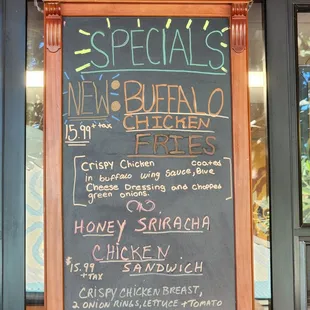 SPECIALS
NEW: BUFFALO
15.99 + tax CHICKEN
FRIES
Crispy Chicken coated
in buffalo wing Sauce, Blue
Cheese Dressing and Chopped
green onions.
HONEY SRIRACHA
CHICKEN
$15.99 SANDWICH
+ TAX
CRISPY CHICKEN BREAST,
2 ONION RINGS, LETTUCE + TOMATO